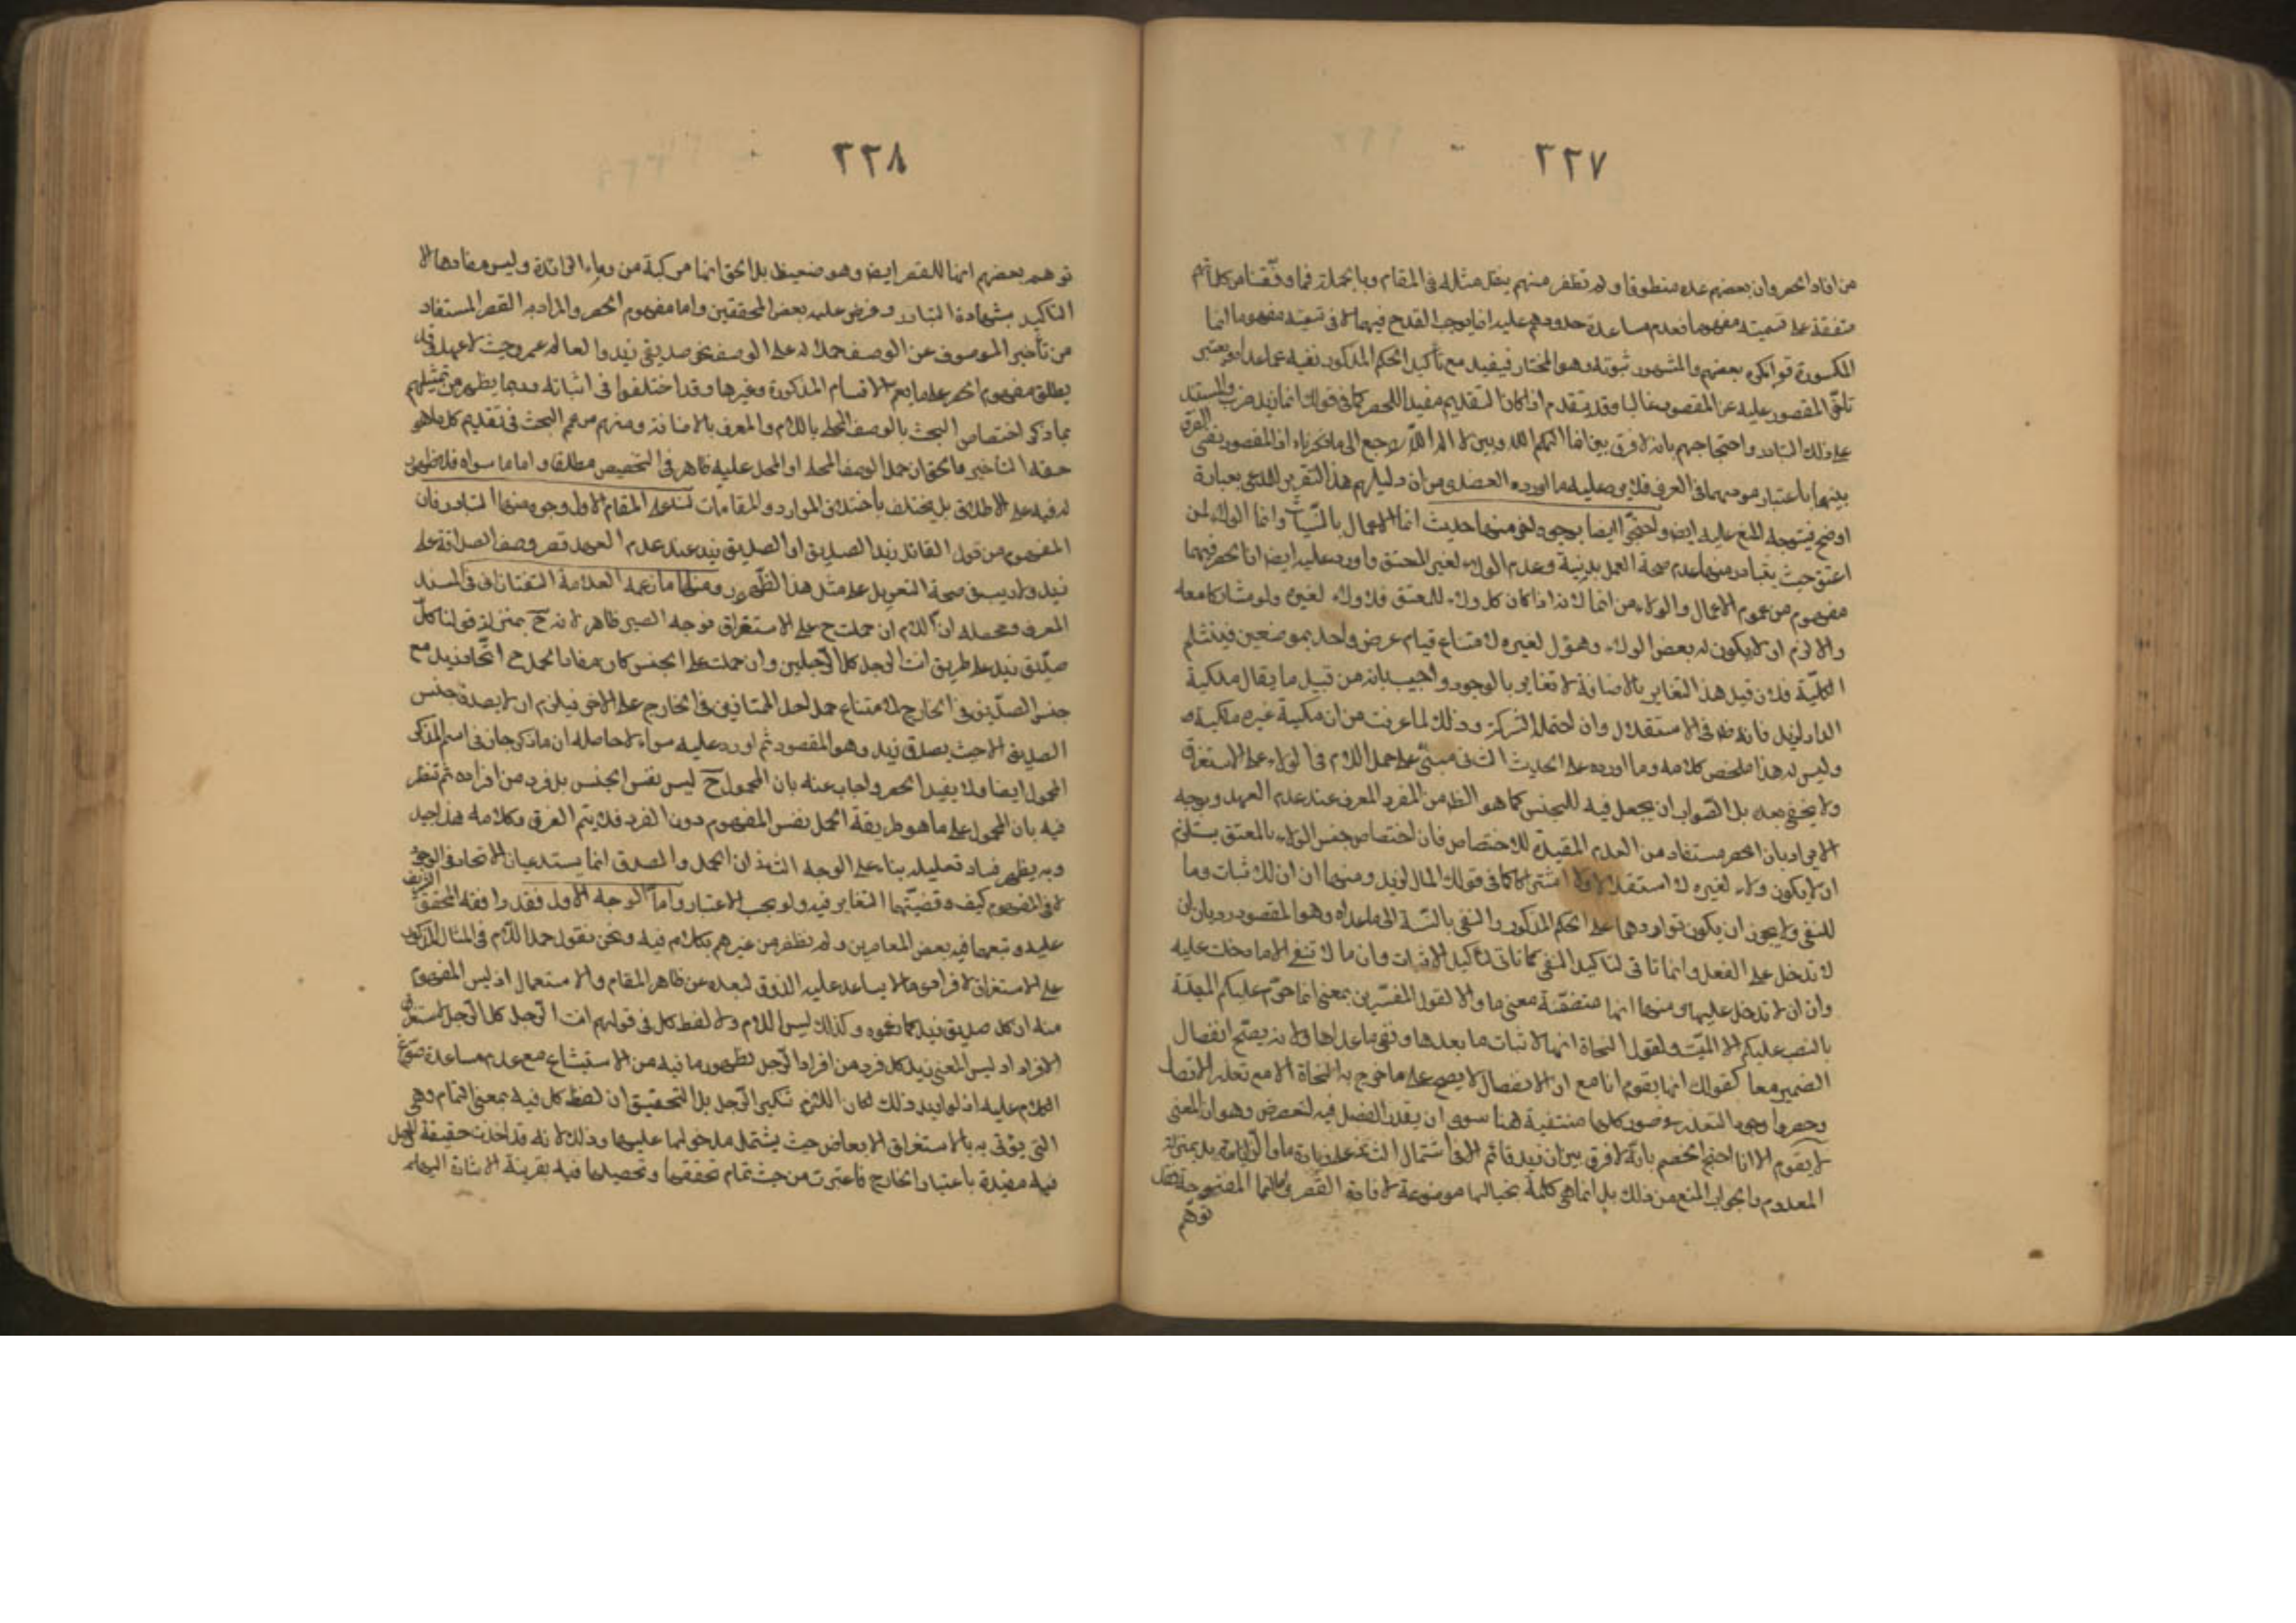 ٢٢٧
من افاد الحصر وان بعضهم عده منطوقا ولم نظفر منهم بنقل مثله في المقام وبالجملة فما وقفنا من كلماتهم
متفقة على تسميته مفهوما فعدم مساعدة حدودهم عليه انما يوجب القدح فيها لا في تسميته مفهوما انما
المكسورة قد انكره بعضهم والمشهور ثبوته وهو المختار فيفيد مع تأكيد الحكم المذكور نفيه عما عداه ويعتبر
تأخر المقصور عليه عن المقصور غالبا وقد يتقدم اذا كان التقديم مفيدا للحصر كما في قولك انما زيد ضربت والمستند
على ذلك التبادر واحتجاجهم بانه لا فرق بين انما الهكم الله وبين لا اله الا الله راجع الى ما ذكرناه اذ المقصود نفي الفرق
بينهما باعتبار مفهومهما في العرف فلا يرد عليه ما اورده العضدي من ان دليلهم هذا التقرير للمدعى بعبارة
اوضح فيتوجه المنع عليه ايض واحتج ايضا بوجوه اخر منها حديث انما الاعمال بالنيات وانما الولاء لمن
اعتق حيث يتبادر منهما عدم صحة العمل بدونية وعدم الولاء لغير المعتق واورد عليه ايض ان الحصر فيهما
مفهوم من عموم الاعمال والولاء من انما لانه اذا كان كل ولاء للمعتق فلا ولاء لغيره ولو مشاركا معه
والا لزم ان لا يكون له بعض الولاء وهو ل لغيره لامتناع قيام عرض واحد بموضعين فينثلم
الكلية فان قيل هذا التغاير بالاضافة لا تغاير بالوجود واجيب بانه من قبيل ما يقال ملكية
الدار لزيد فانه ظ في الاستقلال وان احتمل الشركة وذلك لما عرفت من ان ملكية غيره ملكية له
وليس له هذا ملخص كلامه وما اورده على الحديث الثاني مبني على حمل اللام في الولاء على الاستغراق
ولا يخفى بعده بل الصواب ان يجعل فيه للجنس كما هو الظ من المفرد المعرف عند عدم العهد ويوجه
الايراد بان الحصر مستفاد من اللام المفيدة للاختصاص فان اختصاص جنس الولاء بالمعتق يستلزم
ان لا يكون ولاء لغيره لا استقلالا ولا اشتراكا كما في قولك المال لزيد ومنها ان ان للاثبات وما
للنفي ولا يجوز ان يكون تواردهما على الحكم المذكور والنفي بالنسبة الى ما عداه وهو المقصود رد بان ان
لا تدخل على الفعل وانما تاتي لتاكيد النفي كما تاتي لتأكيد الاثبات وان ما لا تنفي الا ما دخلت عليه
وان ان لا تدخل عليها ومنها انها متضمنة معنى ما والا لقول المفسرين بمعنى انما حرم عليكم الميتة
بالنصب عليكم الا الميتة ولقول النحاة انها لاثبات ما بعدها ونفي ما عداها ولانه يصح انفصال
الضمير معها كقولك انما يقوم انا مع ان الانفصال لا يصح على ما خرج به النحاة الا مع تعذر الاتصال
وحصروا وجوه التعذر في صور كلها منتفية هنا سوى ان يقدر الفصل فيه لغرض وهو ان المعنى
لا يقوم الا انا احتج الخصم بانه لا فرق بين ان زيد قائم الا في اشتمال الثاني على زيادة ما والزيادة بمنزلة
المعدوم والجواب المنع من ذلك بل انما هي كلمة بحيالها موضوعة لافادة القصر واما انما المفتوحة فقد
توهم
٢٢٨
توهم بعضهم انها للقصر ايض وهو ضعيف بل الحق انها مركبة من وماء الزائدة وليس مفادها الا
التاكيد بشهادة التبادر ونص عليه بعض المحققين واما مفهوم الحصر والمراد به القصر المستفاد
من تأخير الموصوف عن الوصف حملا له على الوصف نحو صديقي زيد والعالم عمرو حيث لا عهد وقد
يطلق مفهوم الحصر على ما يعم الاقسام المذكورة وغيرها وقد اختلفوا في اثباته وربما يظهر من تمثيلهم
بما ذكر اختصاص البحث بالوصف المحلى باللام والمعرف بالاضافة ومنهم من عمم البحث في تقديم كل ما هو
حقه التأخير والحق ان حمل الوصف المحلى او المحل عليه ظاهر في التخصيص مطلقا واما ما سواه فلا ظهور
له فيه على الاطلاق بل يختلف باختلاف الموارد والمقامات لنا على المقام الاول وجوه منها التبادر فان
المفهوم من قول القائل زيد الصديق او الصديق زيد عند عدم العهد قصر وصف الصداقة على
زيد ولا ريب في صحة التعويل على مثل هذا الظهور ومنها ما زعمه العلامة التفتازاني في المسند
المعرف ومحصله ان اللام ان حملت ح على الاستغراق فوجه الحصر ظاهر لانه ح بمنزلة قولنا كل
صديق زيد على طريق انت الرجل كل الرجل وان حملت على الجنس كان مفاد الحمل ح اتحاد زيد مع
جنس الصديق في الخارج لامتناع حمل احد المتنافيين في الخارج على الاخر فيلزم ان لا يصدق جنس
الصديق الا حيث يصدق زيد وهو المقصود ثم اورد عليه سؤالا حاصله ان ما ذكر جار في اسم المنكر
المحمول ايضا ولا يفيد الحصر واجاب عنه بان المحمول ح ليس نفس الجنس بل فرد من افراده ثم تنظر
فيه بان المحمول على ما هو طريقة الحمل نفس المفهوم دون الفرد فلا يتم الفرق وكلامه هذا جيد
وبه يظهر فساد تعليله بناء على الوجه الثاني اذ ان الحمل والصدق انما يستدعيان الاتحاد في الوجود
لا في المفهوم كيف وقضيتهما التغاير فيه ولو بحسب الاعتبار واما الوجه الاول فقد وافقه المحقق الشريف
عليه وتبعهما فيه بعض المعاصرين ولم نظفر من غيرهم بكلام فيه ونحن نقول حمل اللام في المثال المذكور
على الاستغراق الافرادي مما لا يساعد عليه الذوق لبعده عن ظاهر المقام والاستعمال اذ ليس المفهوم
منه ان كل صديق زيد كما زعموه وكذلك ليس اللام ولا لفظ كل في قولهم انت الرجل كل الرجل لاستغراق
الافراد اذ ليس المعنى زيد كل فرد من افراد الرجل لظهور ما فيه من الاستبشاع مع عدم مساعدة صوغ
الكلام عليه اذ لو اريد ذلك لكان اللازم تنكير الرجل بل التحقيق ان لفظ كل فيه بمعنى التمام وهي
التي يؤتى بها لاستغراق الابعاض حيث يشتمل مدخولها عليها وذلك لانه قد اخذت حقيقة الرجل
فيه مقيدة باعتبار الخارج فاعتبرت من حيث تمام تحققها وتحصيلها فيه بقرينة الاشارة اليها